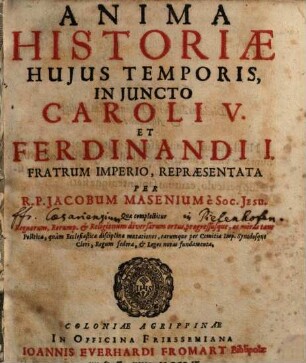 ANIMA
HISTORIÆ
HUJUS TEMPORIS,
IN JUNCTO
CAROLI V.
ET
FERDINANDI I.
FRATRUM IMPERIO, REPRÆSENTATA
PER
R. P. JACOBUM MASENIUM è Soc. JESU.
Qua complectitur in
Regnorum, Rerump. & Religionum diversarum ortus, progressusque, ac morbi tam
Politicæ, quàm Ecclesiasticæ disciplinæ mutationes, earumque per Comitia Imp. Synodosque
Cleri, Regum fœdera, & Leges novas fundamenta.
COLONIÆ AGRIPPINÆ
IN OFFICINA FRIESSEMIANA
IOANNIS EVERHARDI FROMART Bibliopolæ